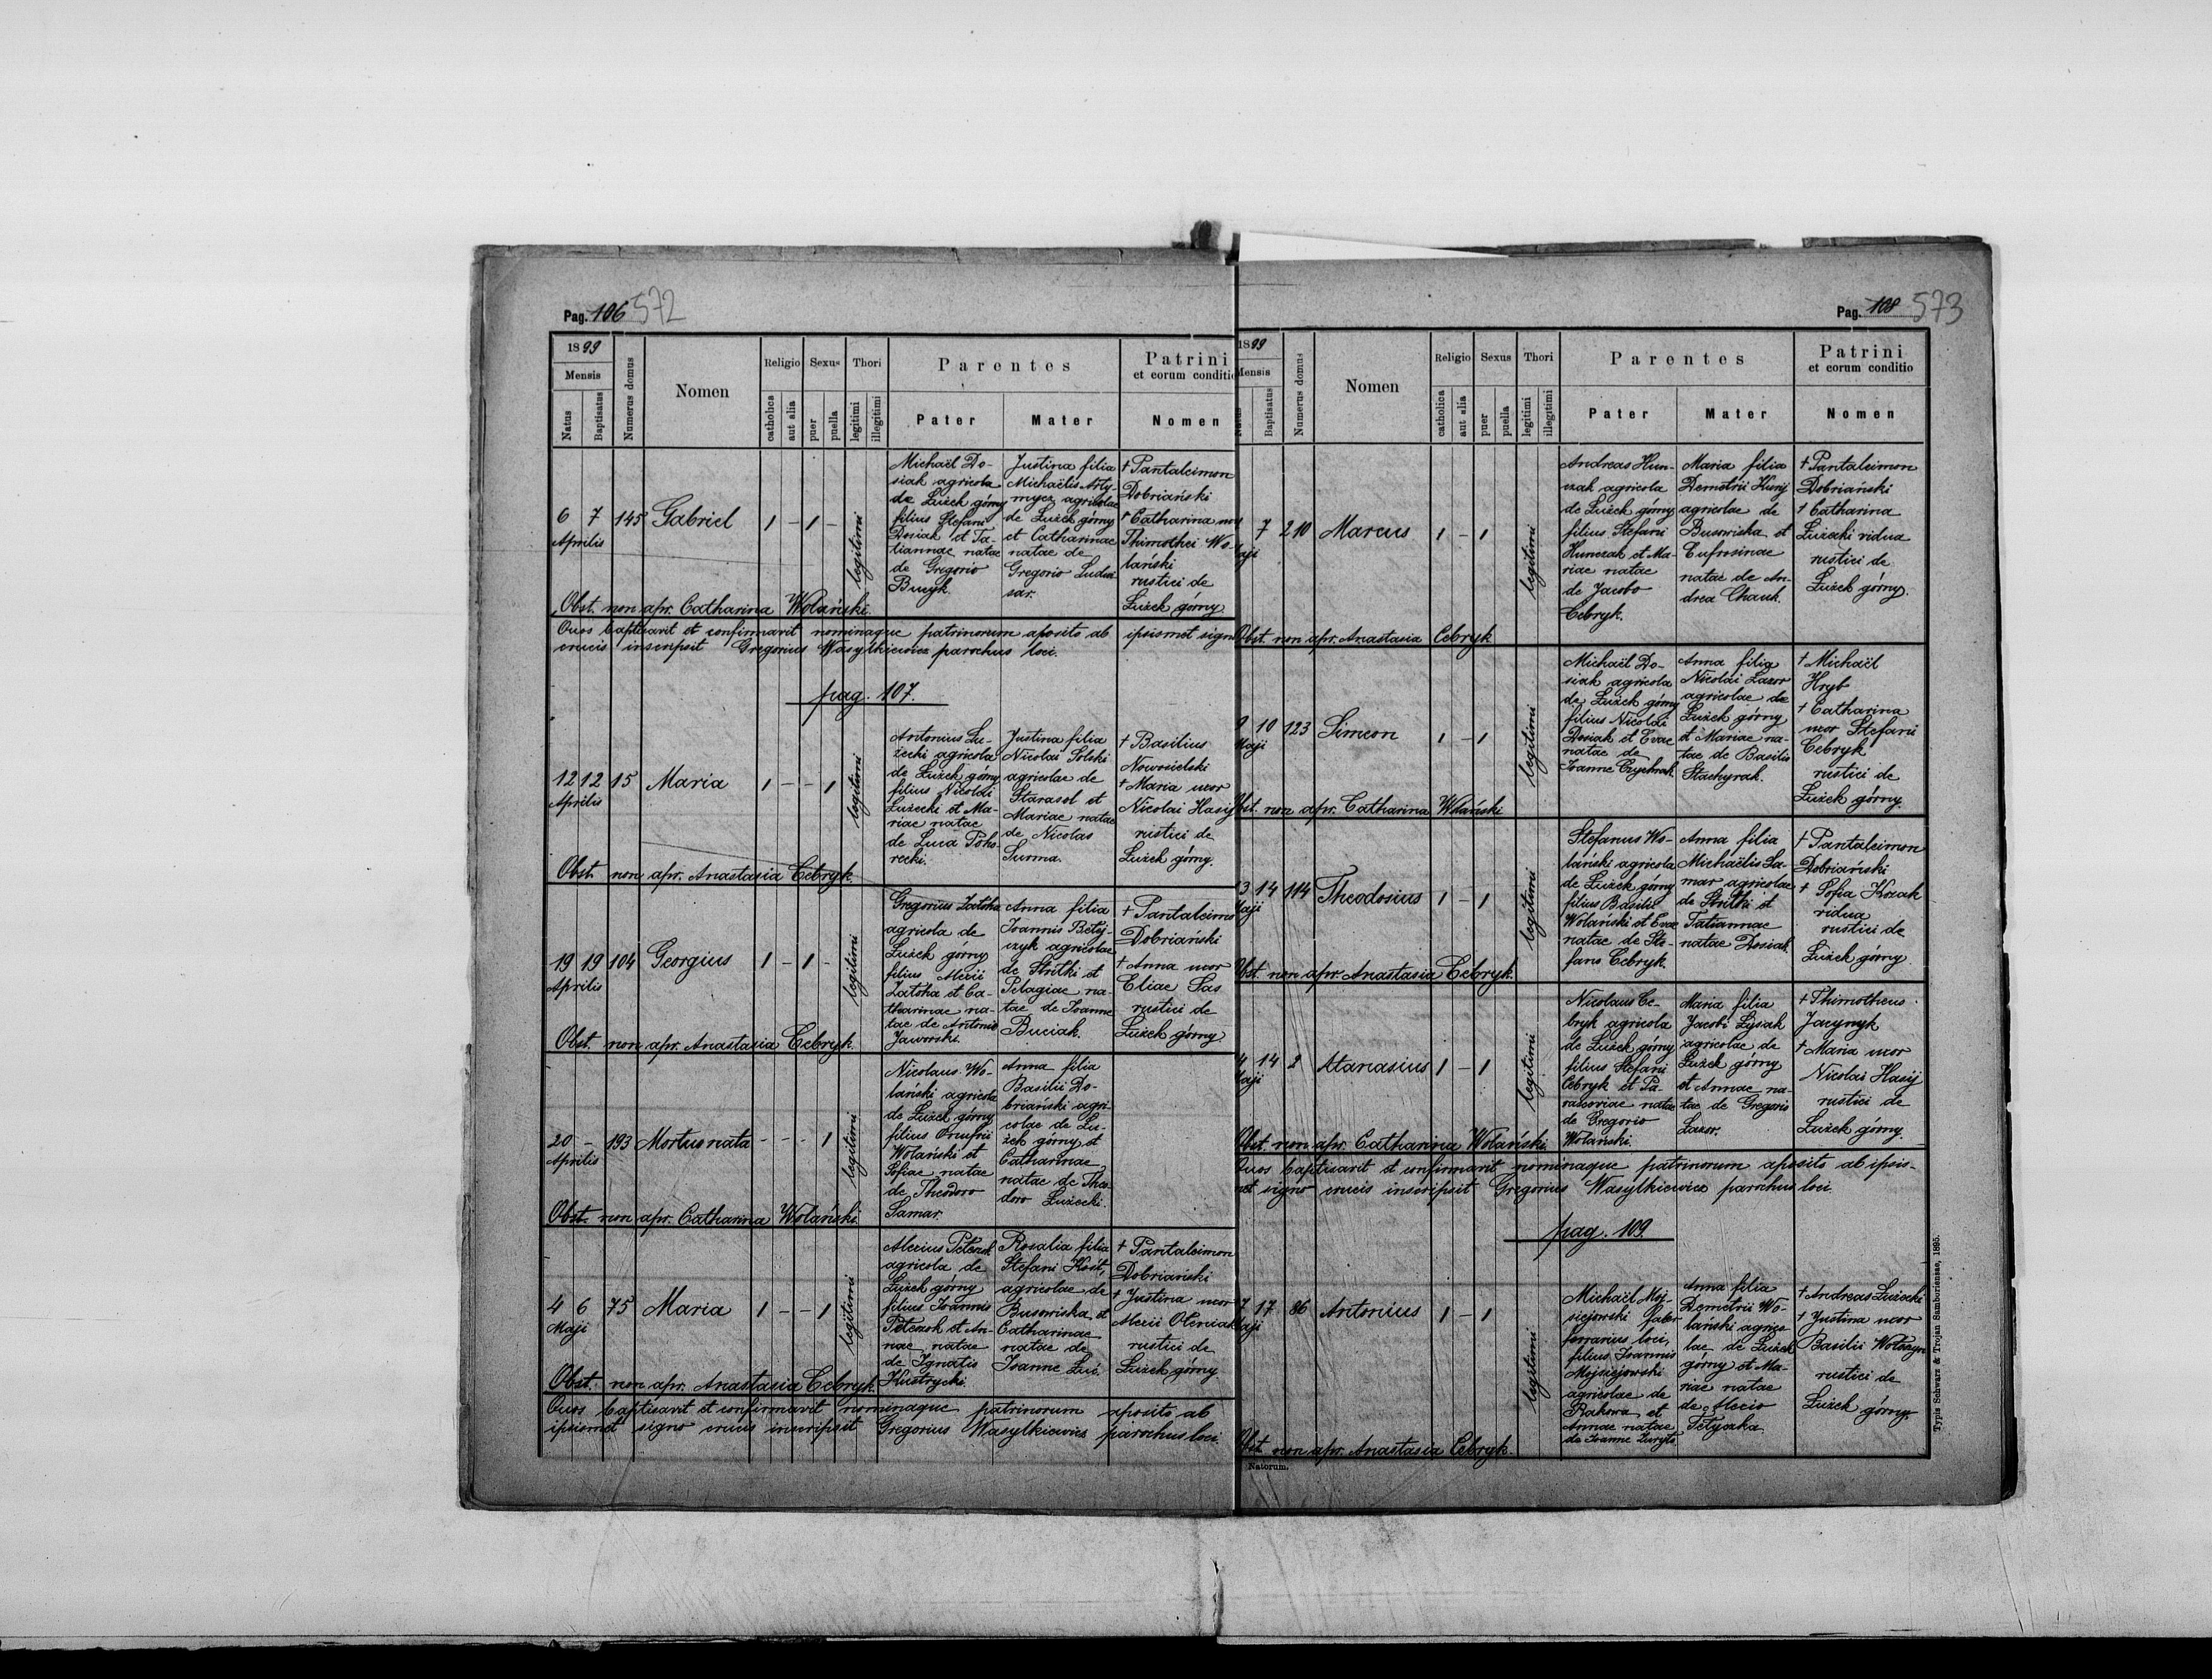 Pag. 106 572
1899
Mensis
Natus
Baptisatus
Numerus domus
Nomen
Religio
catholica
aut alia
Sexus
puer
puella
Thori
legitimi
illegitimi
Parentes
Pater
Mater
Patrini
et eorum conditio
Nomen
6 7 145 Gabriel 1 - 1 -
Aprilis
legitimi
Michaël Do-
siak agricola
de Łużek górny
filius Stefani
Dosiak et Ta-
tiannae natae
de Gregorio
Bucyk.
Justina filia
Michaëlis Arty-
mycz agricolae
de Łużek górny
et Catharinae
natae de
Gregorio Ludwi
sar.
† Pantaleimon
Dobriański
† Catharina uxor
Thimothei Wo-
lański
rustici de
Łużek górny
Obst. non apr. Catharina Wolański.
Quos baptisavit et confirmavit nominaque patrinorum aposito ab ipsismet signo
crucis inscripsit Gregorius Wasylkiewicz parochus loci.
pag. 107.
12 12 15 Maria 1 - - 1
Aprilis
legitimi
Antonius Łu-
żecki agricola
de Łużek górny
filius Nicolai
Łużecki et Ma-
riae natae
de Luca Poho-
recki.
Justina filia
Nicolai Solski
agricolae de
Starasol et
Mariae natae
de Nicolao
Surma.
† Basilius
Nowosielski
† Maria uxor
Nicolai Hasij
rustici de
Łużek górny.
Obst. non apr. Anastasia Cebryk.
19 19 104 Georgius 1 - 1 -
Aprilis
legitimi
Gregorius Zatoka
agricola de
Łużek górny
filius Alexii
Zatoka et Ca-
tharinae na-
tae de Antonio
Jaworski.
Anna filia
Joannis Betej-
czyk agricolae
de Striłki et
Pelagiae na-
tae de Joanne
Buciak.
† Pantaleimo
Dobriański
† Anna uxor
Eliae Sas
rustici de
Łużek górny
Obst. non apr. Anastasia Cebryk.
20 - 193 Mortus nata - - - 1
Aprilis
legitimi
Nicolaus Wo-
lański agricola
de Łużek górny
filius Onufrii
Wolański et
Sofiae natae
de Theodoro
Samar.
Anna filia
Basilii Do-
briański agri-
colae de Łu-
żek górny et
Catharinae
natae de Theo-
doro Łużecki.
Obst. non apr. Catharina Wolański.
4 6 75 Maria 1 - - 1
Maji
legitimi
Alexius Petenok
agricola de
Łużek górny
filius Joannis
Petenok et An-
nae natae
de Ignatio
Kustrycki.
Rosalia filia
Stefani Kość,
agricolae de
Busowiska et
Catharinae
natae de
Joanne Łuć.
† Pantaleimon
Dobriański
† Justina uxor
Alexii Oleniak
rustici de
Łużek górny
Obst. non apr. Anastasia Cebryk.
Quos baptisavit et confirmavit nominaque patrinorum aposito ab
ipsismet signo crucis inscripsit Gregorius Wasylkiewicz parochus loci.
Pag. 108 573
1899
Mensis
Natus
Baptisatus
Numerus domus
Nomen
Religio
catholica
aut alia
Sexus
puer
puella
Thori
legitimi
illegitimi
Parentes
Pater
Mater
Patrini
et eorum conditio
Nomen
7 210 Marcus 1 - 1
aji
legitimi
Andreas Hun-
czak agricola
de Łużek górny
filius Stefani
Hunczak et Ma-
riae natae
de Jacobo
Cebryk.
Maria filia
Demetrii Kunij
agricolae de
Busowiska et
Eufrosinae
natae de An-
drea Chauk.
† Pantaleimon
Dobriański
† Catharina
Łużecki vidua
rustici de
Łużek górny.
Obst. non apr. Anastasia Cebryk
9 10 123 Simeon 1 - 1
Maji
legitimi
Michaël Do-
siak agricola
de Łużek górny
filius Nicolai
Dosiak et Evae
natae de
Joanne Czychrak.
Anna filia
Nicolai Lazor
agricolae de
Łużek górny
et Mariae na-
tae de Basilio
Stachyrak.
† Michaël
Hryb
† Catharina
uxor Stefani
Cebryk
rustici de
Łużek górny.
Obst. non apr. Catharina Wolański
3 14 114 Theodosius 1 - 1
aji
legitimi
Stefanus Wo-
lański agricola
de Łużek górny
filius Basilii
Wolański et Evae
natae de Ste-
fano Cebryk.
Anna filia
Michaëlis Sa-
mar agricolae
de Striłki et
Tatiannae
natae Dosiak
† Pantaleimon
Dobriański
† Sofia Kozak
vidua
rustici de
Łużek górny
Obst. non apr. Anastasia Cebryk.
4 14 2 Atanasius 1 - 1
aji
legitimi
Nicolaus Ce-
bryk agricola
de Łużek górny
filius Stefani
Cebryk et Pa-
rascoviae natae
de Gregorio
Wolański.
Maria filia
Jacobi Łysiak
agricolae de
Łużek górny
et Annae na-
tae de Gregorio
Lazor.
† Thimotheus
Jacynyk
† Maria uxor
Nicolai Hasij
rustici de
Łużek górny.
Obst. non apr. Catharina Wolański.
Quos baptisavit et confirmavit nominaque patrinorum aposito ab ipsis-
met signo crucis inscripsit Gregorius Wasylkiewicz parochus loci.
pag. 109.
7 17 86 Antonius 1 - 1
aji
legitimi
Michaël Moj-
siejowski faber
ferrarius loci,
filius Joannis
Mojsiejowski
agricolae de
Rakowa et
Annae natae
de Joanne
Anna filia
Demetrii Wo-
lański agrico-
lae de Łużek
górny et Ma-
riae natae
de Alexio
Petyczka
† Andreas Łużecki
† Justina uxor
Basilii Wołczyn
rustici de
Łużek górny.
Obst. non apr. Anastasia Cebryk.
Natorum.
Typis Schwarz & Trojan Samboriensae, 1895.